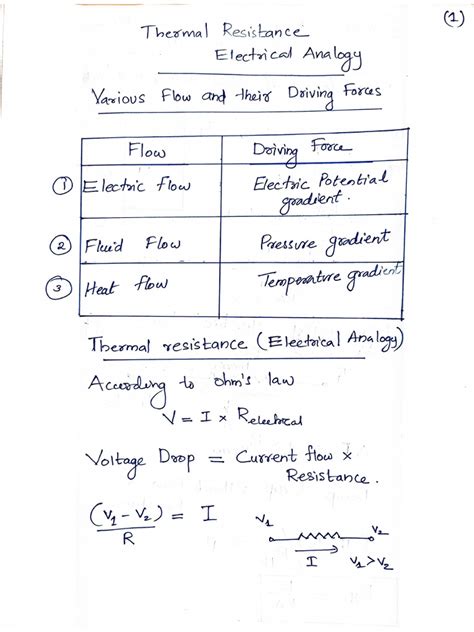 (1)
Thermal Resistance
Electrical Analogy
Various Flow and their Driving Forces
Flow Driving Force
① Electric flow Electric Potential gradient.
② Fluid Flow Pressure gradient
③ Heat flow Temperature gradient
Thermal resistance (Electrical Analogy)
According to ohm's law
V = I × Relectrical
Voltage Drop = Current flow ×
Resistance.
(V₁ - V₂) = I
R
V₁ V₂
I V₁>V₂